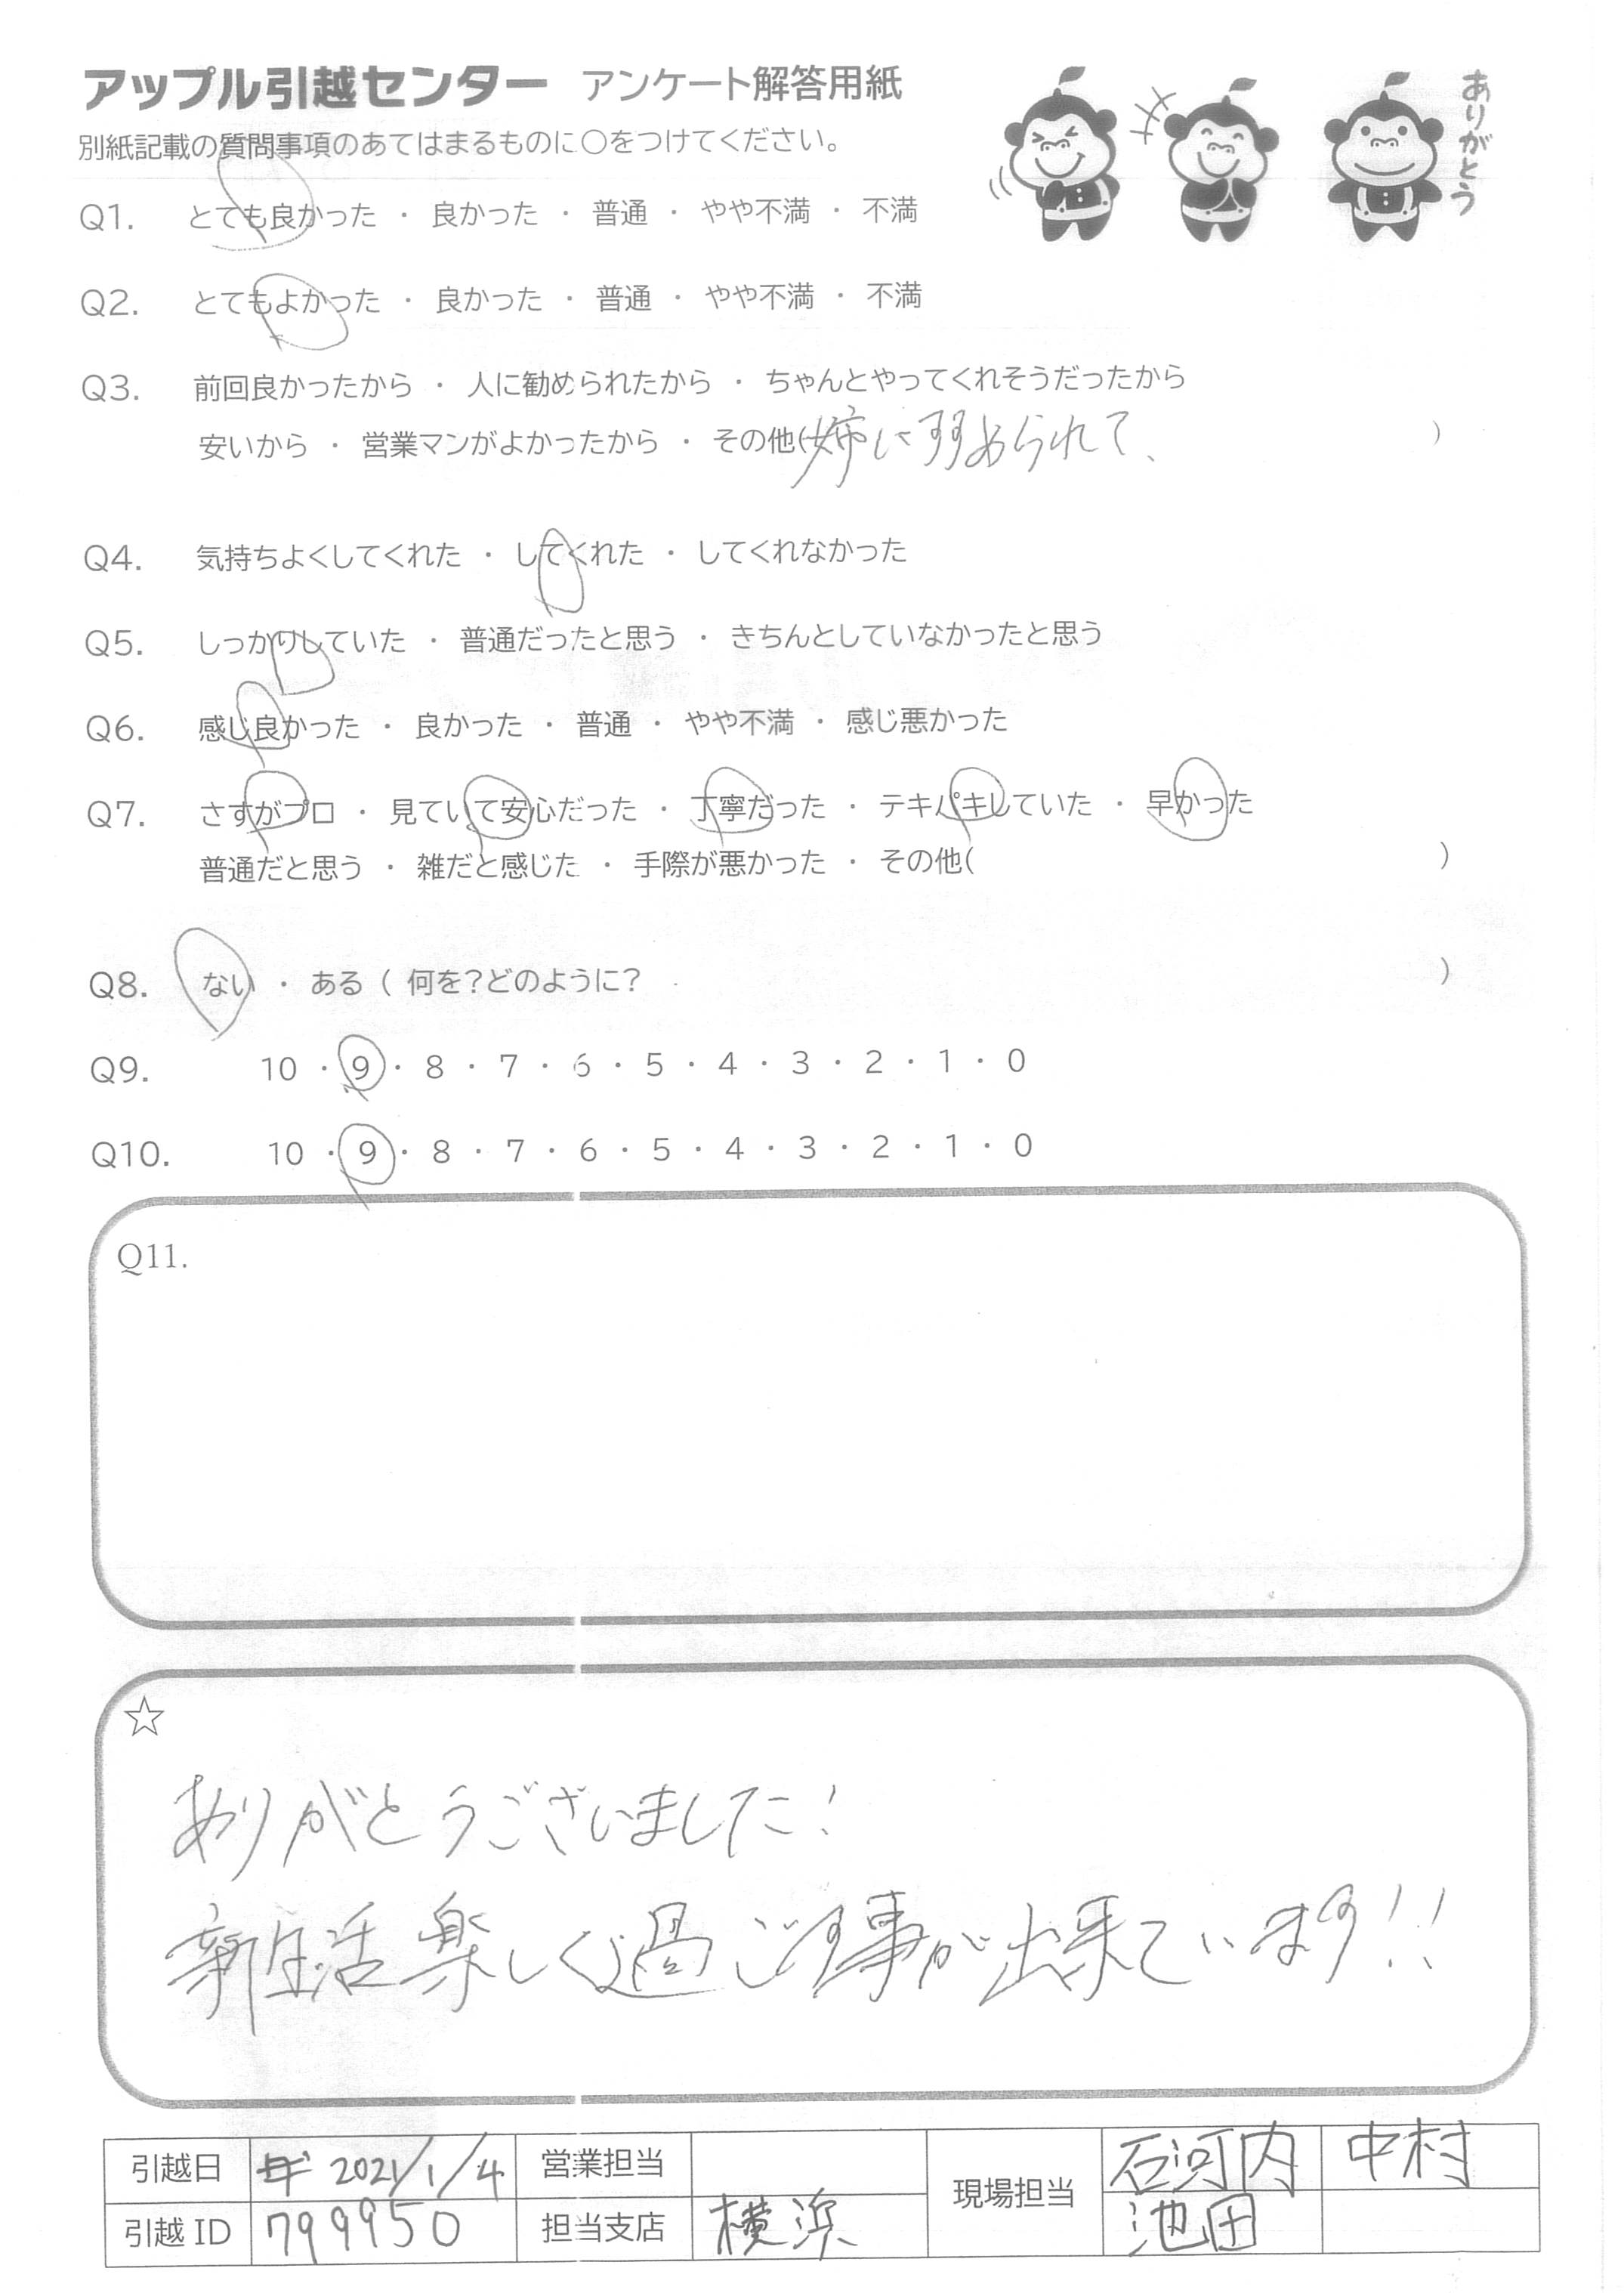 アップル引越センター アンケート解答用紙
ありがとう
別紙記載の質問事項のあてはまるものに○をつけてください。
Q1. とても良かった ・ 良かった ・ 普通 ・ やや不満 ・ 不満
Q2. とてもよかった ・ 良かった ・ 普通 ・ やや不満 ・ 不満
Q3. 前回良かったから ・ 人に勧められたから ・ ちゃんとやってくれそうだったから
安いから ・ 営業マンがよかったから ・ その他( 姉に められて、 )
Q4. 気持ちよくしてくれた ・ してくれた ・ してくれなかった
Q5. しっかりしていた ・ 普通だったと思う ・ きちんとしていなかったと思う
Q6. 感じ良かった ・ 良かった ・ 普通 ・ やや不満 ・ 感じ悪かった
Q7. さすがプロ ・ 見ていて安心だった ・ 丁寧だった ・ テキパキしていた ・ 早かった
普通だと思う ・ 雑だと感じた ・ 手際が悪かった ・ その他( )
Q8. ない ・ ある ( 何を?どのように? )
Q9. 10 ・ 9 ・ 8 ・ 7 ・ 6 ・ 5 ・ 4 ・ 3 ・ 2 ・ 1 ・ 0
Q10. 10 ・ 9 ・ 8 ・ 7 ・ 6 ・ 5 ・ 4 ・ 3 ・ 2 ・ 1 ・ 0
Q11.
☆
ありがとうございました!
新生活楽しく過ごす事が出来ています!!
引越日 2021/1/4 営業担当 現場担当 石河内 中村
引越ID 799950 担当支店 横浜 池田